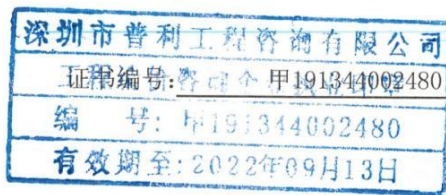 深圳市普利工程咨询有限公司
证书编号: 甲191344002480
编 号: 甲191344002480
有效期至:2022年09月13日